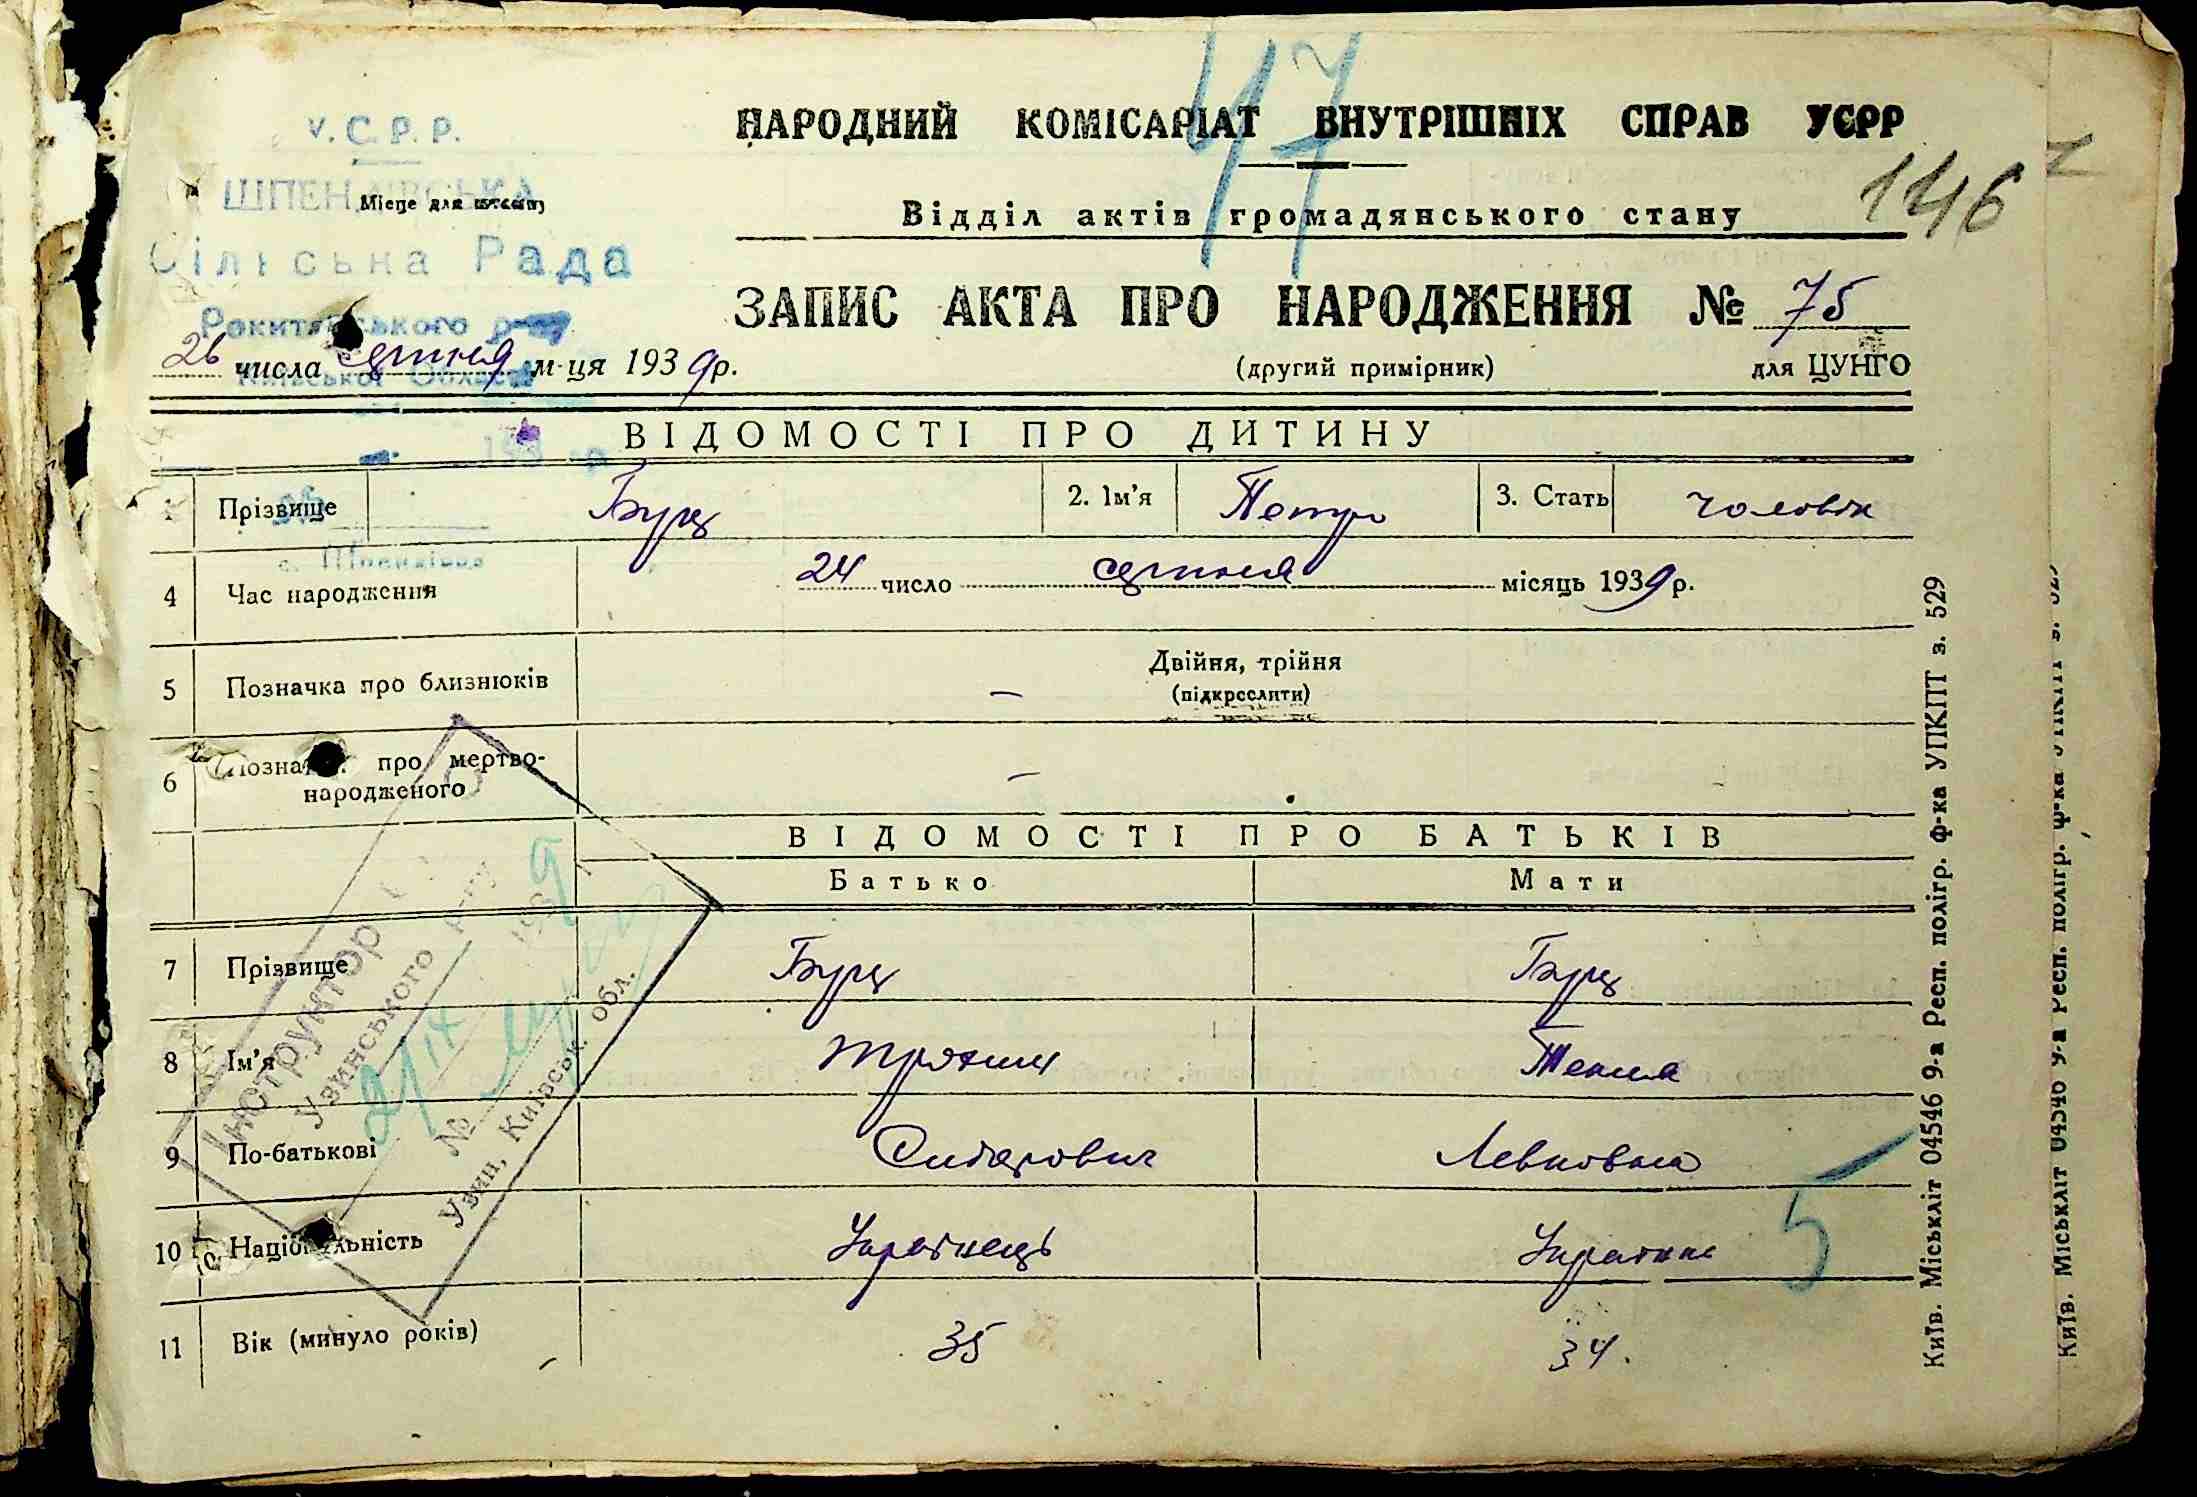 47
У.С.Р.Р.
НАРОДНИЙ КОМІСАРІАТ ВНУТРІШНІХ СПРАВ УСРР
146
ШПЕНДІВСЬКА
Місце для штампу
Відділ актів громадянського стану
Сільська Рада
Рокитянського р-ну
ЗАПИС АКТА ПРО НАРОДЖЕННЯ № 75
Київської Области
26 числа серпня м-ця 1939р.
(другий примірник) для ЦУНГО
193 р.
ВІДОМОСТІ ПРО ДИТИНУ
1 Прізвище Бурц 2. Ім'я Петро 3. Стать чоловік
с. Шпендівка
4 Час народження 24 число серпня місяць 1939р.
5 Позначка про близнюків – Двійня, трійня
(підкреслити)
6 Позначка про мертво-
народженого –
ВІДОМОСТІ ПРО БАТЬКІВ
Батько Мати
7 Прізвище Бурц Бурц
8 Ім'я Трохим Текля
9 По-батькові Сидорович Левковна
10 Національність Українець Українка
5
11 Вік (минуло років) 35 34.
Інструктор
Узвинського р-ну
21/IX 1939
№
Узвин, Київськ. обл.
Київ. Міськліт 04546 9-а Респ. полігр. ф-ка УПКПТ з. 529
Київ. Міськліт 04546 9-а Респ. полігр. ф-ка УПКПТ з. 529